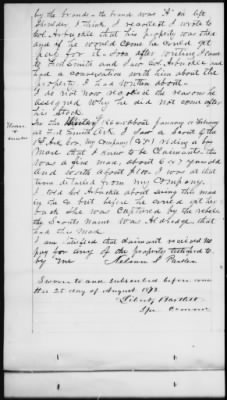 by the brands - the brand was A on left
shoulder I think, I recollect I wrote to
Col Arbuckle that his property was there
and if he would come he could get
pay for it. Soon after writing I came
to Fort Smith and I saw Col Arbuckle and
had a conversation with him about the
property I had written about.
I do not now recollect the reason he
assigned why he did not come after
his stock.
In the Winter of 1862 or about January or February
at Fort Smith Ark I saw a Scout of the
1st Ark Cav, riding a bay
Mare that I knew to be Claimants. She
was a fine mare, about 6 or 7 years old
and worth about $100. I was at that
time detailed from my Company.
I told Col Arbuckle about seeing this mare
but before he could get her
back she was captured by the rebels
the Scouts name was Aldredge that
had the mare
I am satisfied that claimant received no
pay for any of the property testified to
by me Nelson S. Parker
Sworn to and subscribed before me
this 25 day of August 1873
Liberty Bartlett
Spe Commr